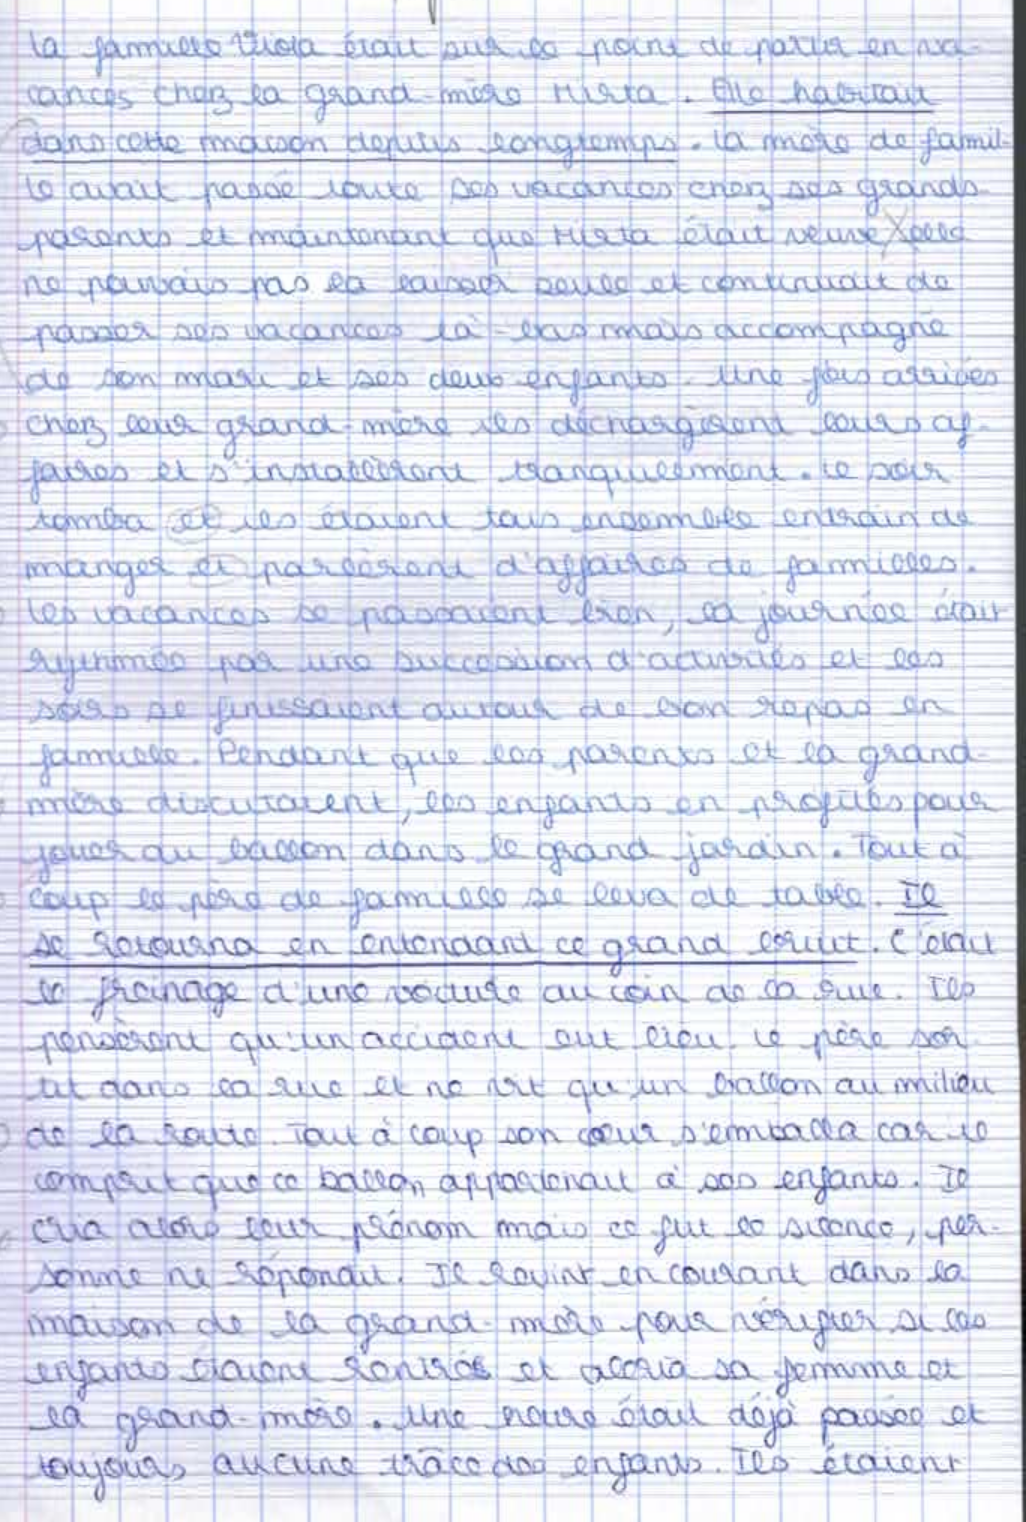 la famielle Viola était sur le point de partir en va-
cances chez la grand-mère Mirta. Elle habitait
dans cette maison depuis longtemps. la mère de famil-
le avait passé toute ses vacances chez ses grands-
parents et maintenant que Mirta était veuve elle
ne pouvais pas la laisser seule et continuait de
passer ses vacances là-bas mais accompagné
de son mari et ses deux enfants. Une fois arrivées
chez leur grand-mère ils déchargèrent leurs af-
faires et s'installèrent tranquillement. le soir
tomba et ils étaient tous ensemble entrain de
manger et parlèrent d'affaires de familles.
les vacances se passaient bien, la journée était
rythmée par une succession d'activités et les
soirs se finissaient autour de bon repas en
famielle. Pendant que les parents et la grand-
mère discutaient, les enfants en profités pour
jouer au ballon dans le grand jardin. Tout à
coup le père de famielle se leva de table. Il
se retourna en entendant ce grand bruit. C'était
le freinage d'une voiture au coin de la rue. Ils
pensèrent qu'un accident eut lieu. le père sor-
tit dans la rue et ne vit qu'un ballon au milieu
de la route. Tout à coup son cœur s'emballa car il
comprit que ce ballon appartenait à ses enfants. Il
cria alors leur prénom mais ce fut le silence, per-
sonne ne répondit. Il revint en courant dans la
maison de la grand-mère pour vérifier si les
enfants étaient rentrés et alerta sa femme et
la grand-mère. Une heure était déjà passée et
toujours aucune trâce des enfants. Ils étaient